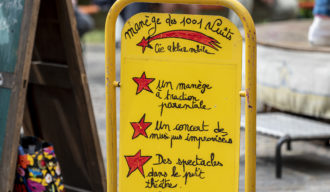 manège des 1001 Nuits
Cie akbambille
Un manège
à traction
parentale
Un concert de
musiques improvisées
Des spectacles
dans le petit
théâtre